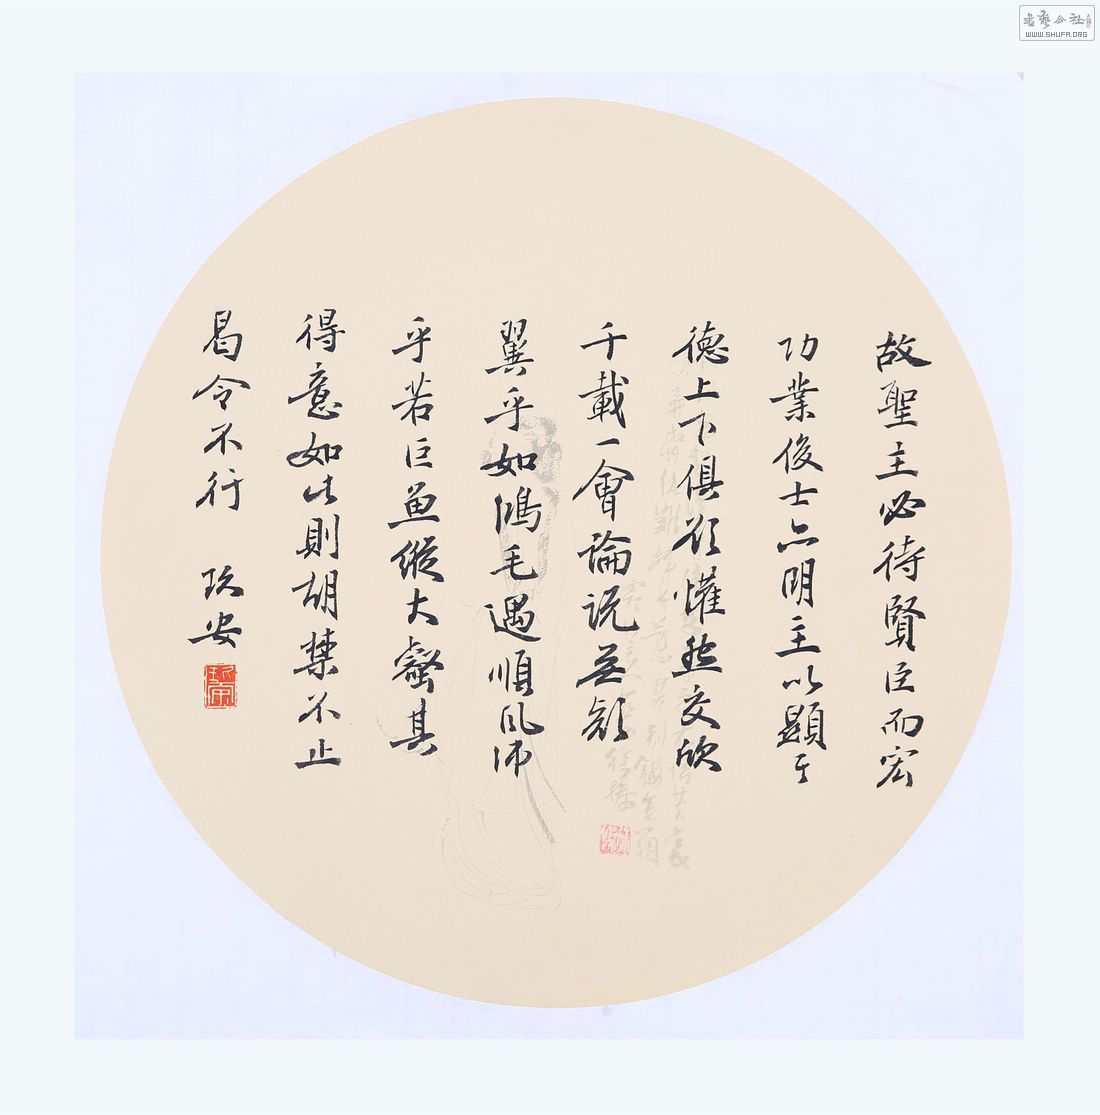 故聖主必待賢臣而宏
功業俊士亦明主以顯其
德上下俱欲懽然交欣
千載一會論説無疑
翼乎如鴻毛遇順風沛
乎若巨魚縱大壑其
得意如此則胡禁不止
曷令不行 玖安
WWW.SHUFA.ORG